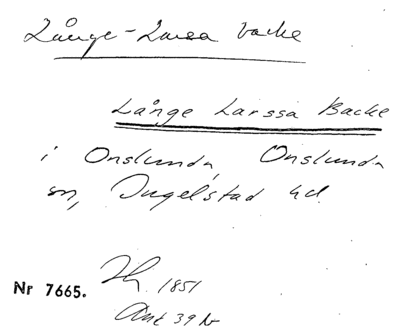 Långe-Larsa backe
Långe Larssa Backe
i Onslunda, Onslunda
sn, Ingelstad hd.
Nr 7665.
1851
Ant 39